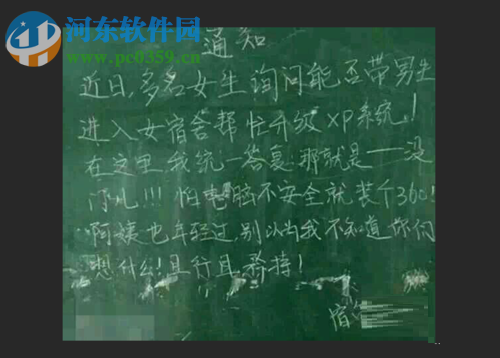 河东软件园
www.pc0359.cn
通知
近日,多名女生询问能否带男生
进入女宿舍帮忙升级XP系统!
在这里,我统一答复:那就是——没
门儿!!!怕电脑不安全就装个360!
阿姨也年轻过,别以为我不知道你们
想什么!且行且珍持!
宿